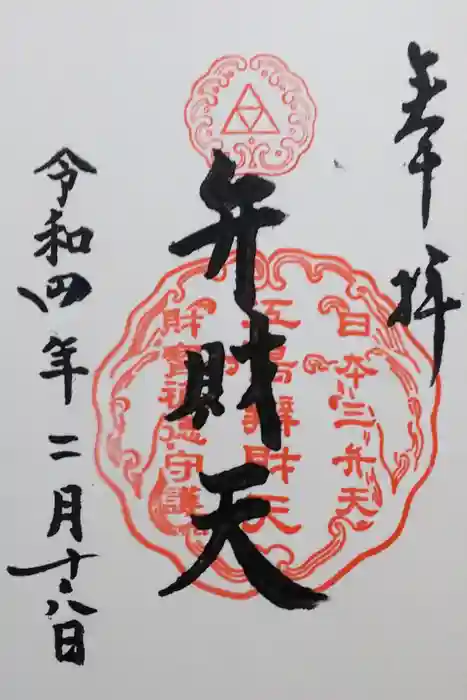 奉拝
日本三弁天
江島辨財天
財寶福徳守護
弁財天
令和四年二月十八日